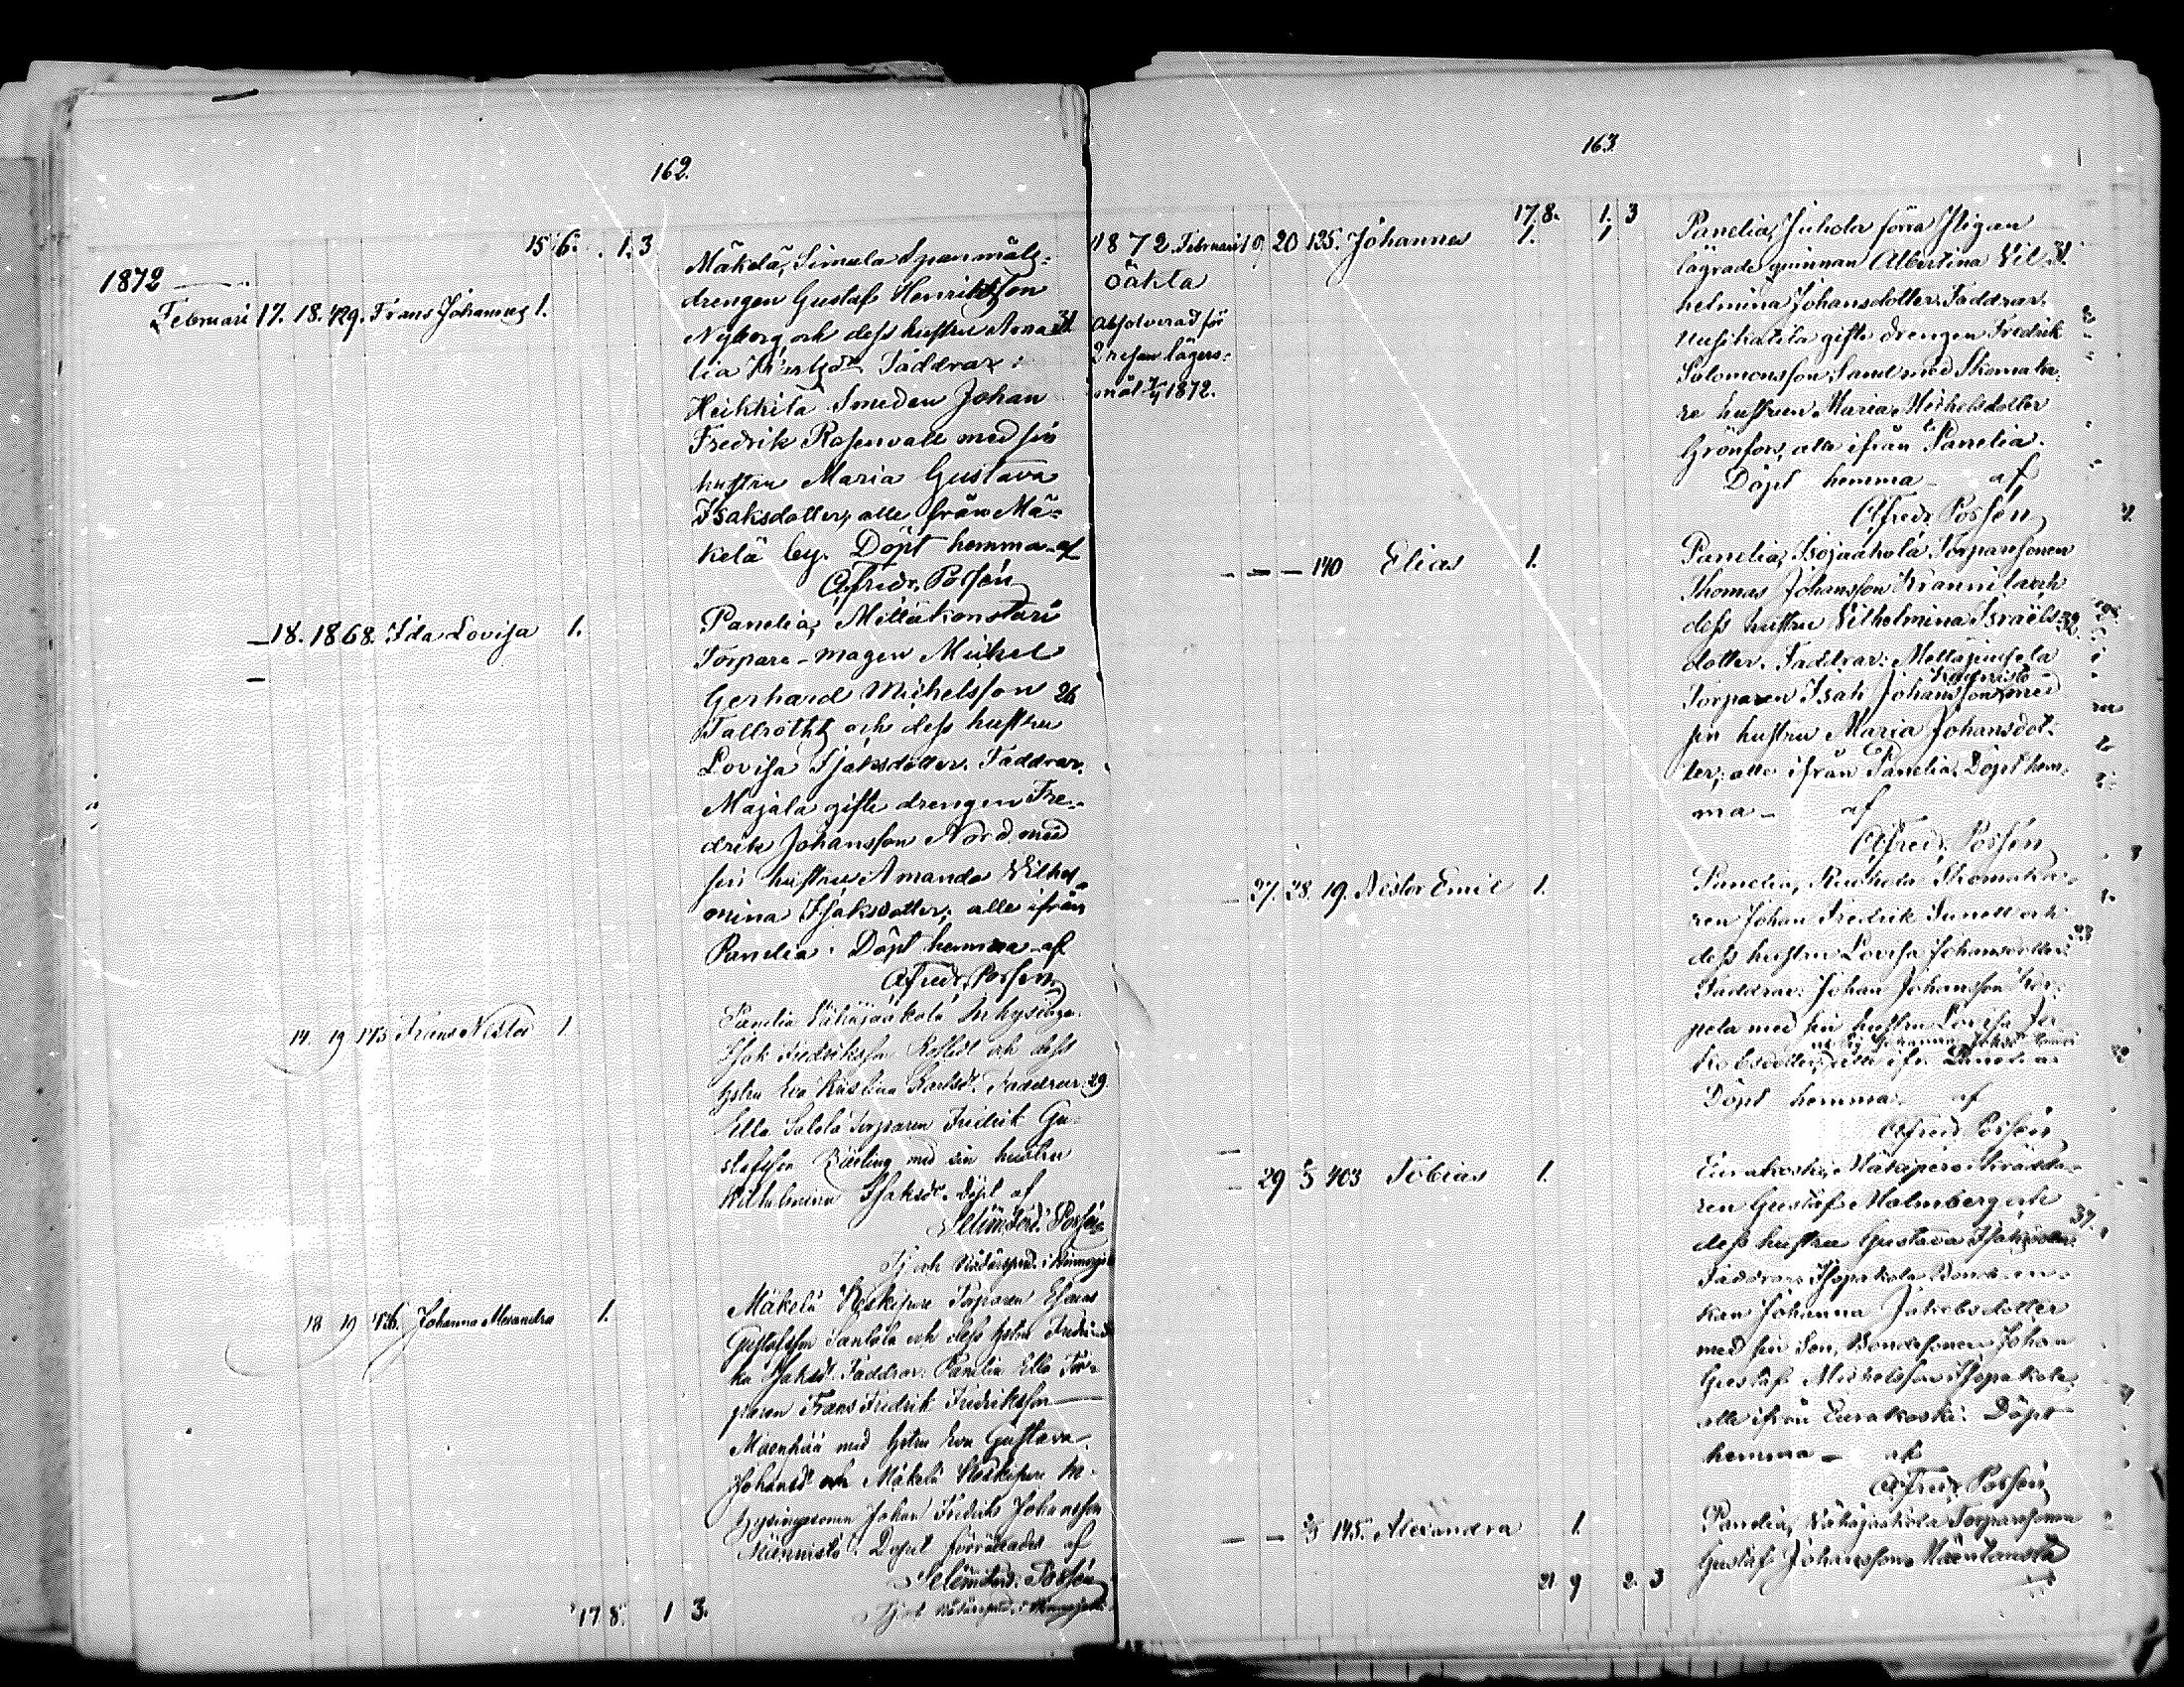 162.
15 6. . 1. 3
1872
Februari 17. 18. 429. Frans Johannes 1.
Mäkelä, Simula Spanmåls-
drengen Gustaf Henriksson
Nyborg och dess hustru Ama 31
lia Faddrar:
Heikkilä Smeden Johan
Fredrik Rosenvall med sin
hustru Maria Gustava
Isaksdotter, alle från Mä-
kelä by. Döpt hemma af
Alfred Possén
— 18. 1868. Ida Lovisa 1.
—
Panelia,
Torpare-mågen Michel
Gerhard Michelsson 26
Tallroth och dess hustru
Lovisa Isaksdotter. Faddrar.
Majala gifte drengen Fre-
drik Johansson Nord med
sin hustru Amanda Vilhel-
mina Isaksdotter, alle ifrån
Panelia. Döpt hemma af
Alfred Possén
14 19 173 Frans Nestor 1
Panelia Vähäjaakola Inhysinge.
Isak Fredriksson och dess
hstru Eva Kristina Faddrar 29
Ella Torparen Fredrik Gu-
stafsson med sin hustru
Wilhelmina Isaksdr. Döpt af
Selim Ferd. Possén
18 19 Johanna Alexandra 1.
Mäkelä Torparen Esaias
Gustafsson Santala och dess hstru Fredri-
ka Isaksdr. Faddrar: Panelia Ella Tor-
paren Frans Fredrik Fredriksson
med hstru Eva Gustava
Johansdr och Mäkelä In-
hysingesonen Johan Fredrik Johansson
Döpet förrättades af
Selim Ferd. Possén
17 8. 1 3.
163
17. 8. 1. 3
1872. Februari 19. 20 135. Johannes 1. 1
Oäkta
Absolverad för
2 resan lägers-
mål 1872.
Panelia, Juhola förra Pigan
lägrade qvinnan Albertina Vil- 31.
helmina Johansdotter. Faddrar.
Uusikatila gifte drengen Fredrik
Salomonsson Sand med Skomaka-
re hustrun Maria Michelsdotter
Grönfors, alla ifrån Panelia.
Döpt hemma af
Alfred Possén
— — — 140 Elias 1.
Panelia, Isojaakola Torparesonen
Thomas Johansson Krannila och
dess hustru Vilhelmina Israels- 32.
dotter. Faddrar:
Torparen Isak Johansson med
sin hustru Maria Johansdot-
ter, alle ifrån Panelia. Döpt hem-
ma — af
Alfred Possén
— 27. 28. 19. Nestor Emil 1.
Panelia, Skomaka-
ren Johan Fredrik och
dess hustru Lovisa Johansdotter. 33
Faddrar: Johan Johansson
med sin hustru Lovisa Ja-
kobsdotter, alla ifr. Panelia
Döpt hemma af
Alfred Possén
—
— 29 2/3 403 Tobias 1.
Eurakoski, Skrädda-
ren Gustaf Malmberg och
dess hustru Gustava Isaksdotter. 37.
Faddrar: Isopakola Bonde-en-
kan Johanna Jakobsdotter
med sin Son, Bondesonen Johan
Gustaf Michelsson Isopakola,
alle ifrån Eurakoski. Döpt
hemma — af
Alfred Possén
— — 145. Alexandra 1.
Panelia, Vähäjaakola Torparesonen
Gustaf Johansson
21 9 2. 3